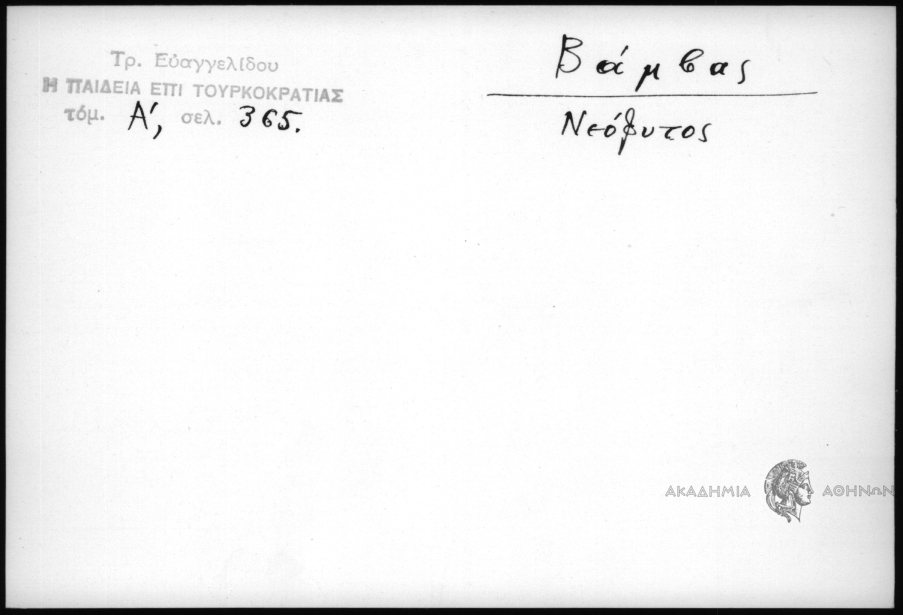 Τρ. Εὐαγγελίδου
Η ΠΑΙΔΕΙΑ ΕΠΙ ΤΟΥΡΚΟΚΡΑΤΙΑΣ
τόμ. Α', σελ. 365.
Βάμβας
Νεόφυτος
ΑΚΑΔΗΜΙΑ ΑΘΗΝΩΝ